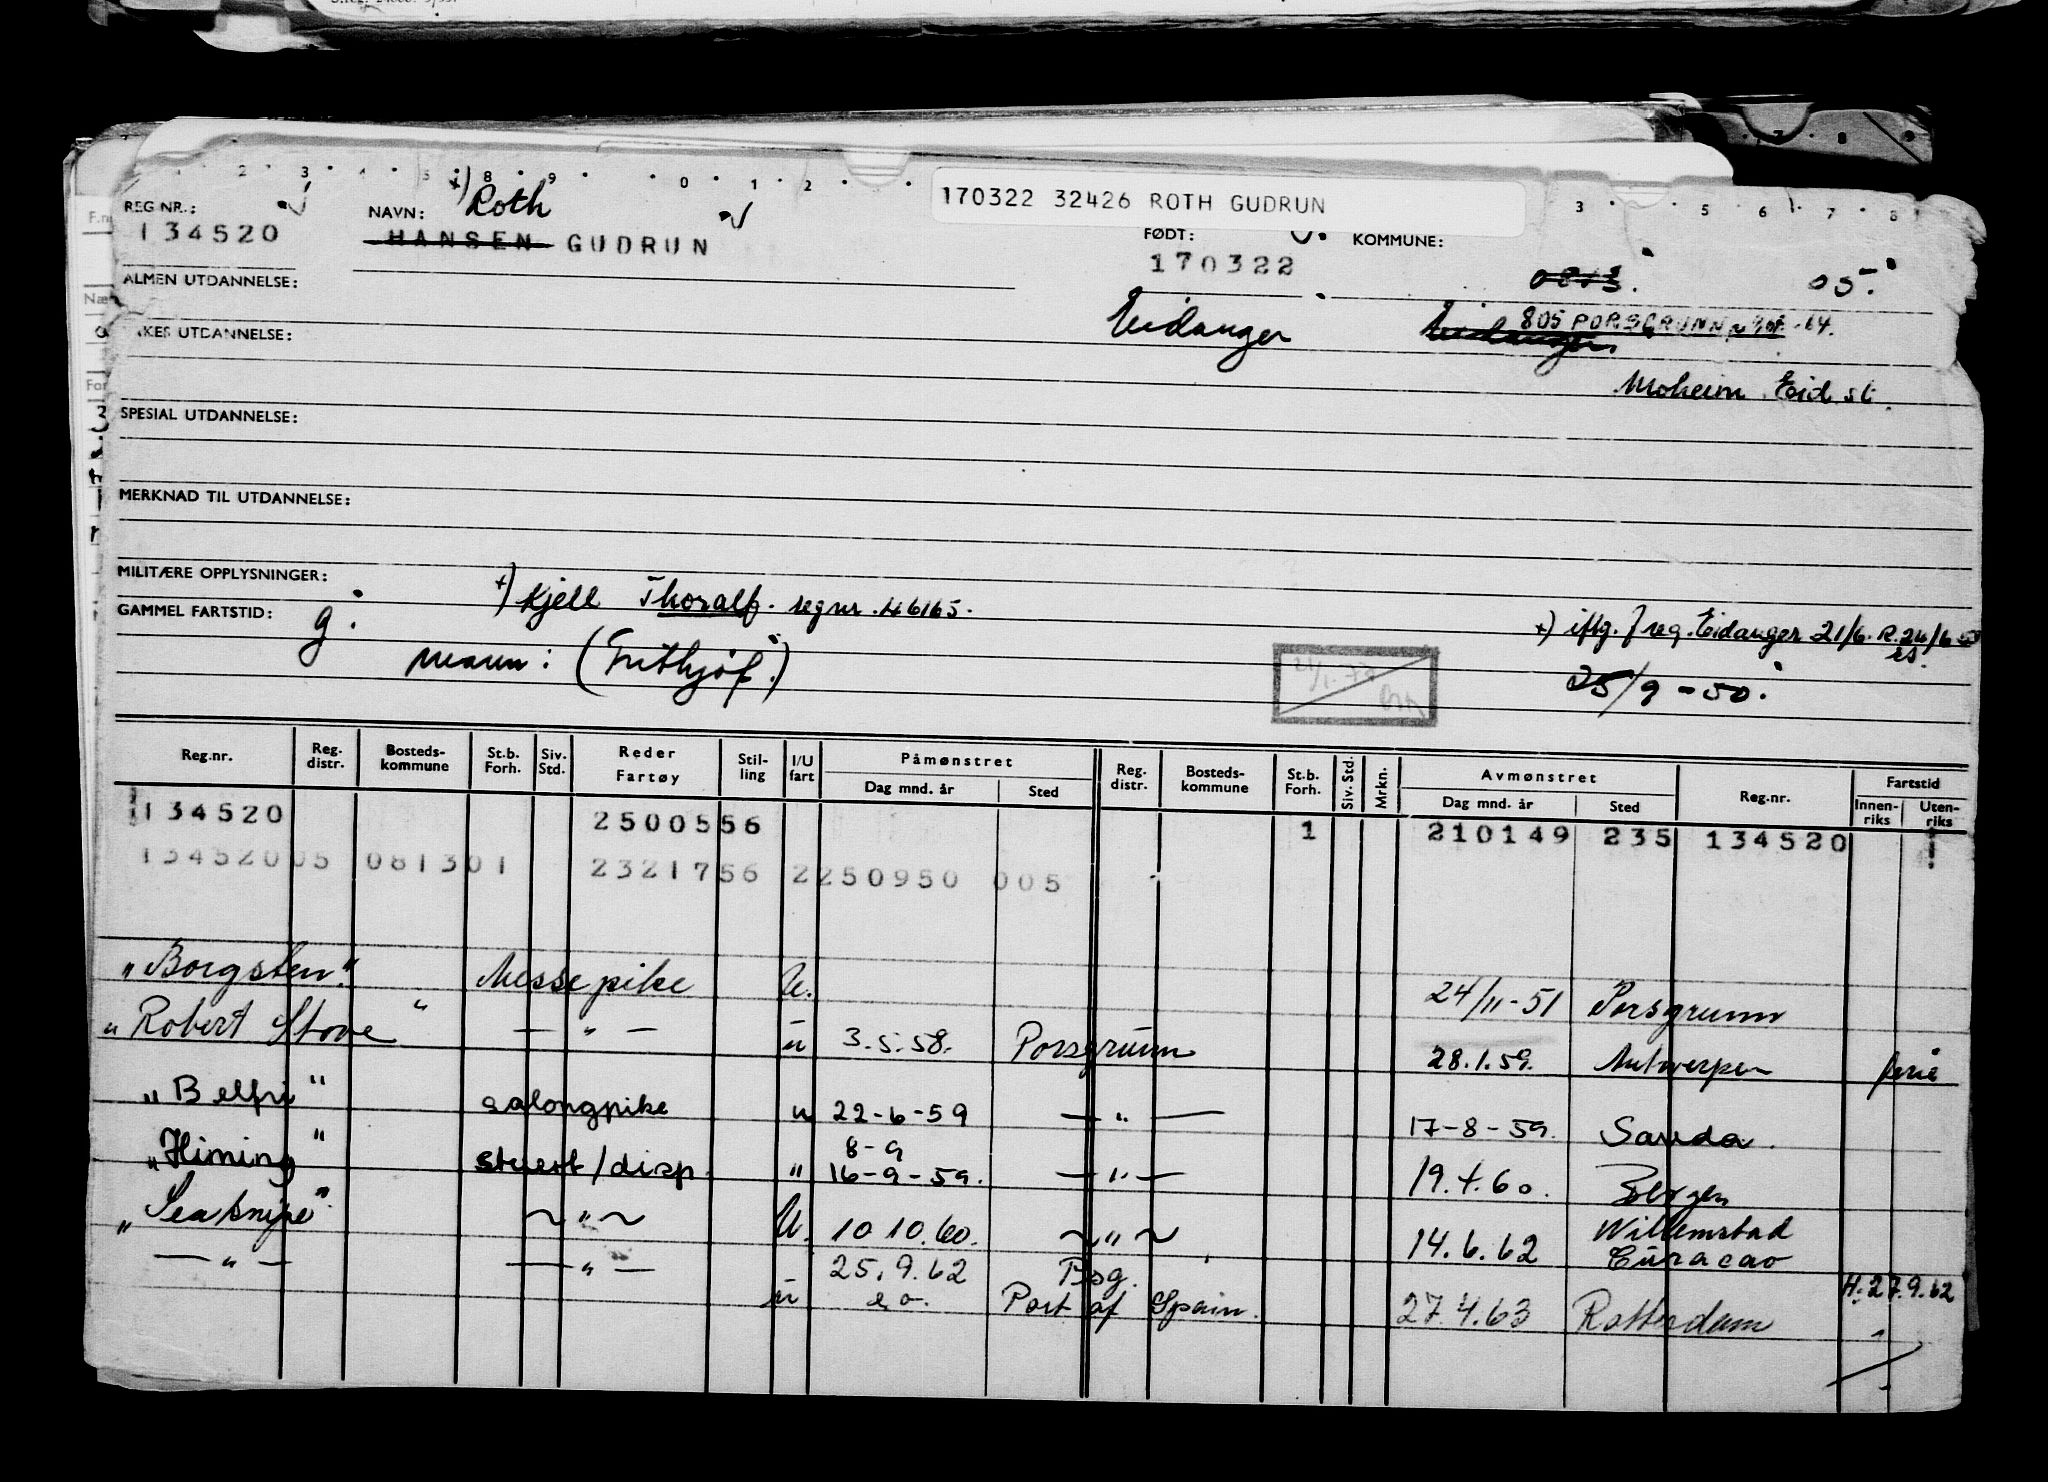 170322 32426 ROTH GUDRUN
REG NR.: 134520
NAVN: +) Roth
HANSEN GUDRUN
FØDT: 170322
KOMMUNE: 0813. 05.
ALMEN UTDANNELSE:
Eidanger Eidanger 805 PORSGRUNN
Moheim Eid. st.
SPESIAL UTDANNELSE:
MERKNAD TIL UTDANNELSE:
MILITÆRE OPPLYSNINGER:
GAMMEL FARTSTID: g.
+) Kjell Thoralf. regnr. 46165.
mann: (Frithjof.)
+) iflg. J reg. Eidanger 21/6. R. 24/6
25/9-50.
Reg.nr. Reg. distr. Bosteds-kommune St.b. Forh. Siv. Std. Reder Fartøy Stil-ling I/U fart Påmønstret Dag mnd. år Sted Reg. distr. Bosteds-kommune St.b. Forh. Siv. Std. Mrkn. Avmønstret Dag mnd. år Sted Reg.nr. Fartstid Innen-riks Uten-riks
134520 2500556 1 210149 235 134520
13452005 081301 2321756 2250950 005
"Borgsten" Messepike U. 24/11-51 Porsgrunn
"Robert Stove" — " — u 3.5.58. Porsgrunn 28.1.59. Antwerpen ferie
"Belfri" salongpike u 22-6-59 — " — 17-8-59. Sauda.
8-9
"Himing" stuert/disp. " 16-9-59. — " — 19.4.60. Bergen
"Seasnipe" ~ " ~ U. 10 10.60. ~ " ~ 14.6.62 Willemstad Curacao
— " — — " — 25.9.62 Psg. H. 27.9.62
u e.o. Port of Spain. 27.4.63 Rotterdam "